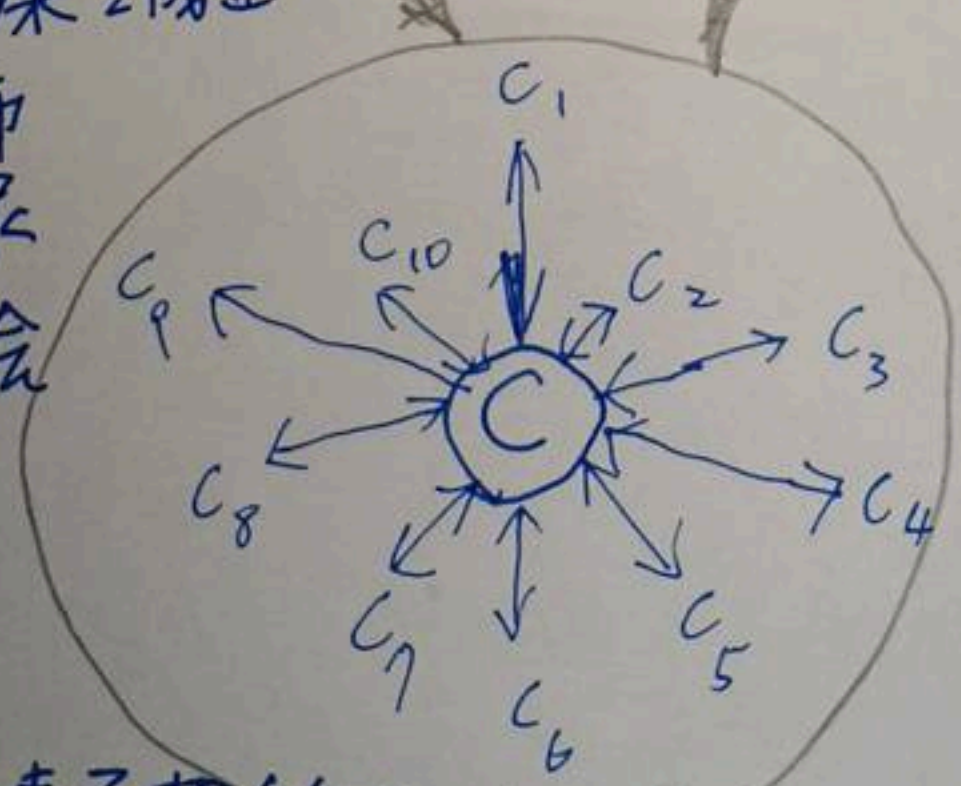 C1
C10
C2
C9
C3
C
C8
C4
C7
C5
C6
会